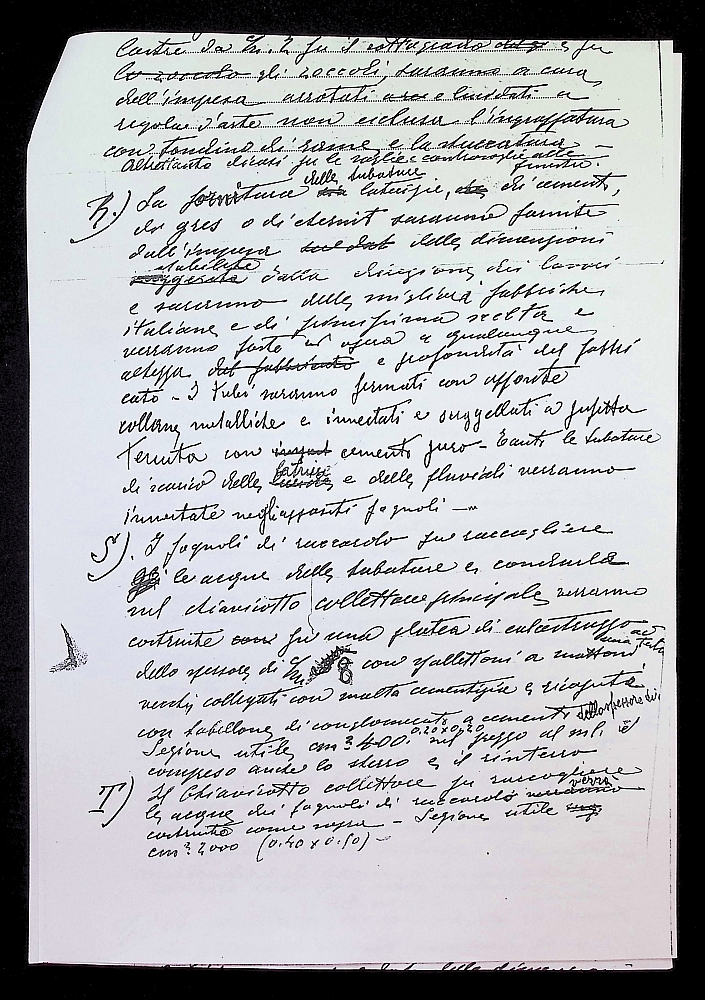 lastre da m. 2 per il sottogrado e per
lo zoccolo gli zoccoli, saranno a cura
dell'impresa arrotati e lucidati a
regola d'arte non esclusa l'ingraffatura
con tondino di rame e la stuccatura —
Altrettanto dicasi per le soglie e controsoglie alle finestre.
R.) La fornitura delle tubature laterizie, di cemento,
di gres o di eternit saranno fornite
dall'impresa delle dimensioni
stabilite suggerite dalla direzione dei lavori
e saranno delle migliori fabbriche
italiane e di primissima scelta e
verranno poste in opera a qualunque
altezza del fabbricato e profondità del fabbri
cato – I tubi saranno fermati con apposite
collane metalliche e innestati e suggellati a perfetta
tenuta con cemento puro – Tanto le tubature
di scarico delle latrine e delle fluviali verranno
innestate negli appositi fognoli —
S). I fognoli di raccordo per raccogliere
le acque delle tubature e condurle
nel chiavicotto collettore principale verranno
costruite con per una platea di calcestruzzo
dello spessore di m. con spallettoni a mattoni ad una testa
vecchi collegati con malta cementizia e ricoperta
con tabellone di conglomerato a cemento dello spessore di
Sezione utile cm² 400. 0,20x0,20 nel prezzo al ml. è
compreso anche lo sterro e il rinterro
T) Il Chiavicotto collettore per raccogliere
le acque dei fognoli di raccordo verranno verrà
costruito come sopra – Sezione utile
cm² 2000 (0.40 x 0.50) —